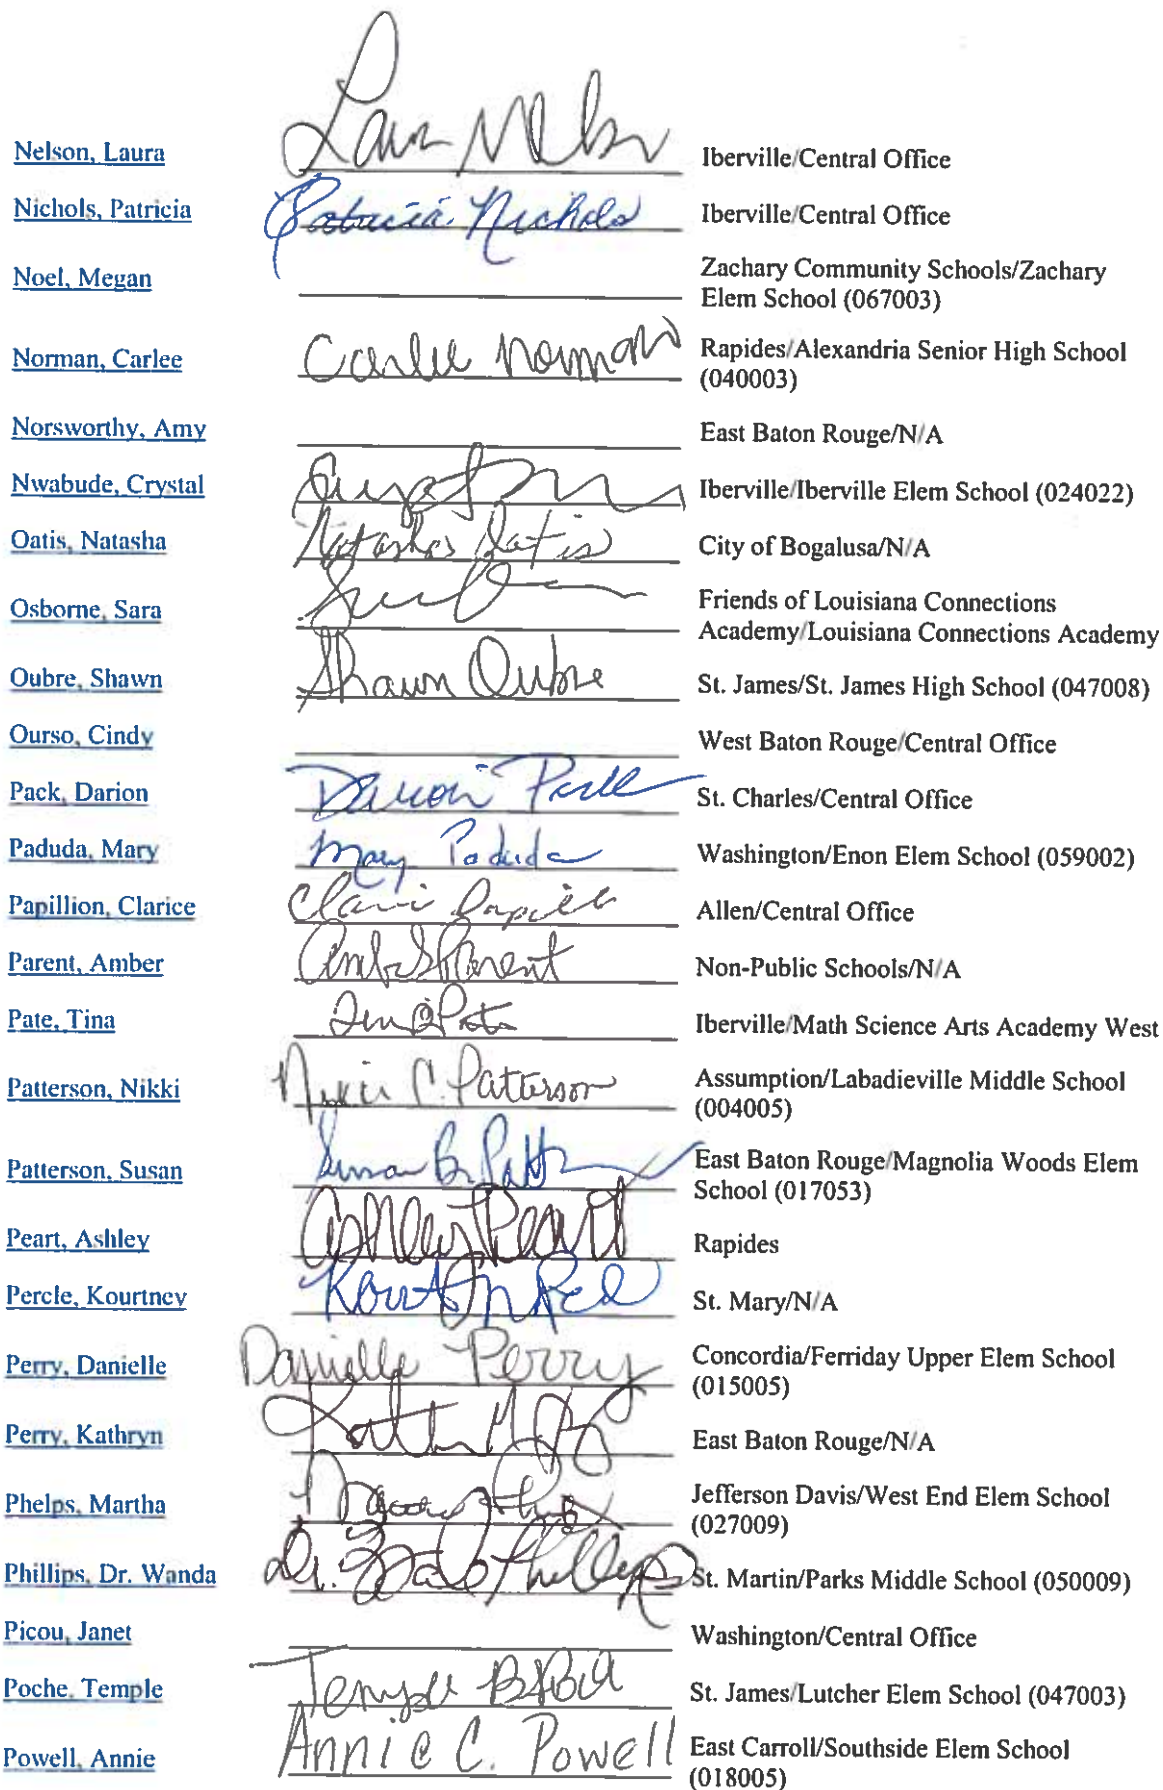 Nelson, Laura Laura Nelson Iberville/Central Office
Nichols, Patricia Patricia Nichols Iberville/Central Office
Noel, Megan Zachary Community Schools/Zachary
Elem School (067003)
Norman, Carlee Carlee Norman Rapides/Alexandria Senior High School
(040003)
Norsworthy, Amy East Baton Rouge/N/A
Nwabude, Crystal Iberville/Iberville Elem School (024022)
Oatis, Natasha Natasha Oatis City of Bogalusa/N/A
Osborne, Sara Friends of Louisiana Connections
Academy/Louisiana Connections Academy
Oubre, Shawn Shawn Oubre St. James/St. James High School (047008)
Ourso, Cindy West Baton Rouge/Central Office
Pack, Darion Darion Pack St. Charles/Central Office
Paduda, Mary Mary Paduda Washington/Enon Elem School (059002)
Papillion, Clarice Allen/Central Office
Parent, Amber Parent Non-Public Schools/N/A
Pate, Tina Iberville/Math Science Arts Academy West
Patterson, Nikki Nikki C. Patterson Assumption/Labadieville Middle School
(004005)
Patterson, Susan Susan B. East Baton Rouge/Magnolia Woods Elem
School (017053)
Peart, Ashley Ashley Peart Rapides
Percle, Kourtney St. Mary/N/A
Perry, Danielle Danielle Perry Concordia/Ferriday Upper Elem School
(015005)
Perry, Kathryn East Baton Rouge/N/A
Phelps, Martha Jefferson Davis/West End Elem School
(027009)
Phillips, Dr. Wanda Dr. Phillips St. Martin/Parks Middle School (050009)
Picou, Janet Washington/Central Office
Poche, Temple Temple St. James/Lutcher Elem School (047003)
Powell, Annie Annie C. Powell East Carroll/Southside Elem School
(018005)